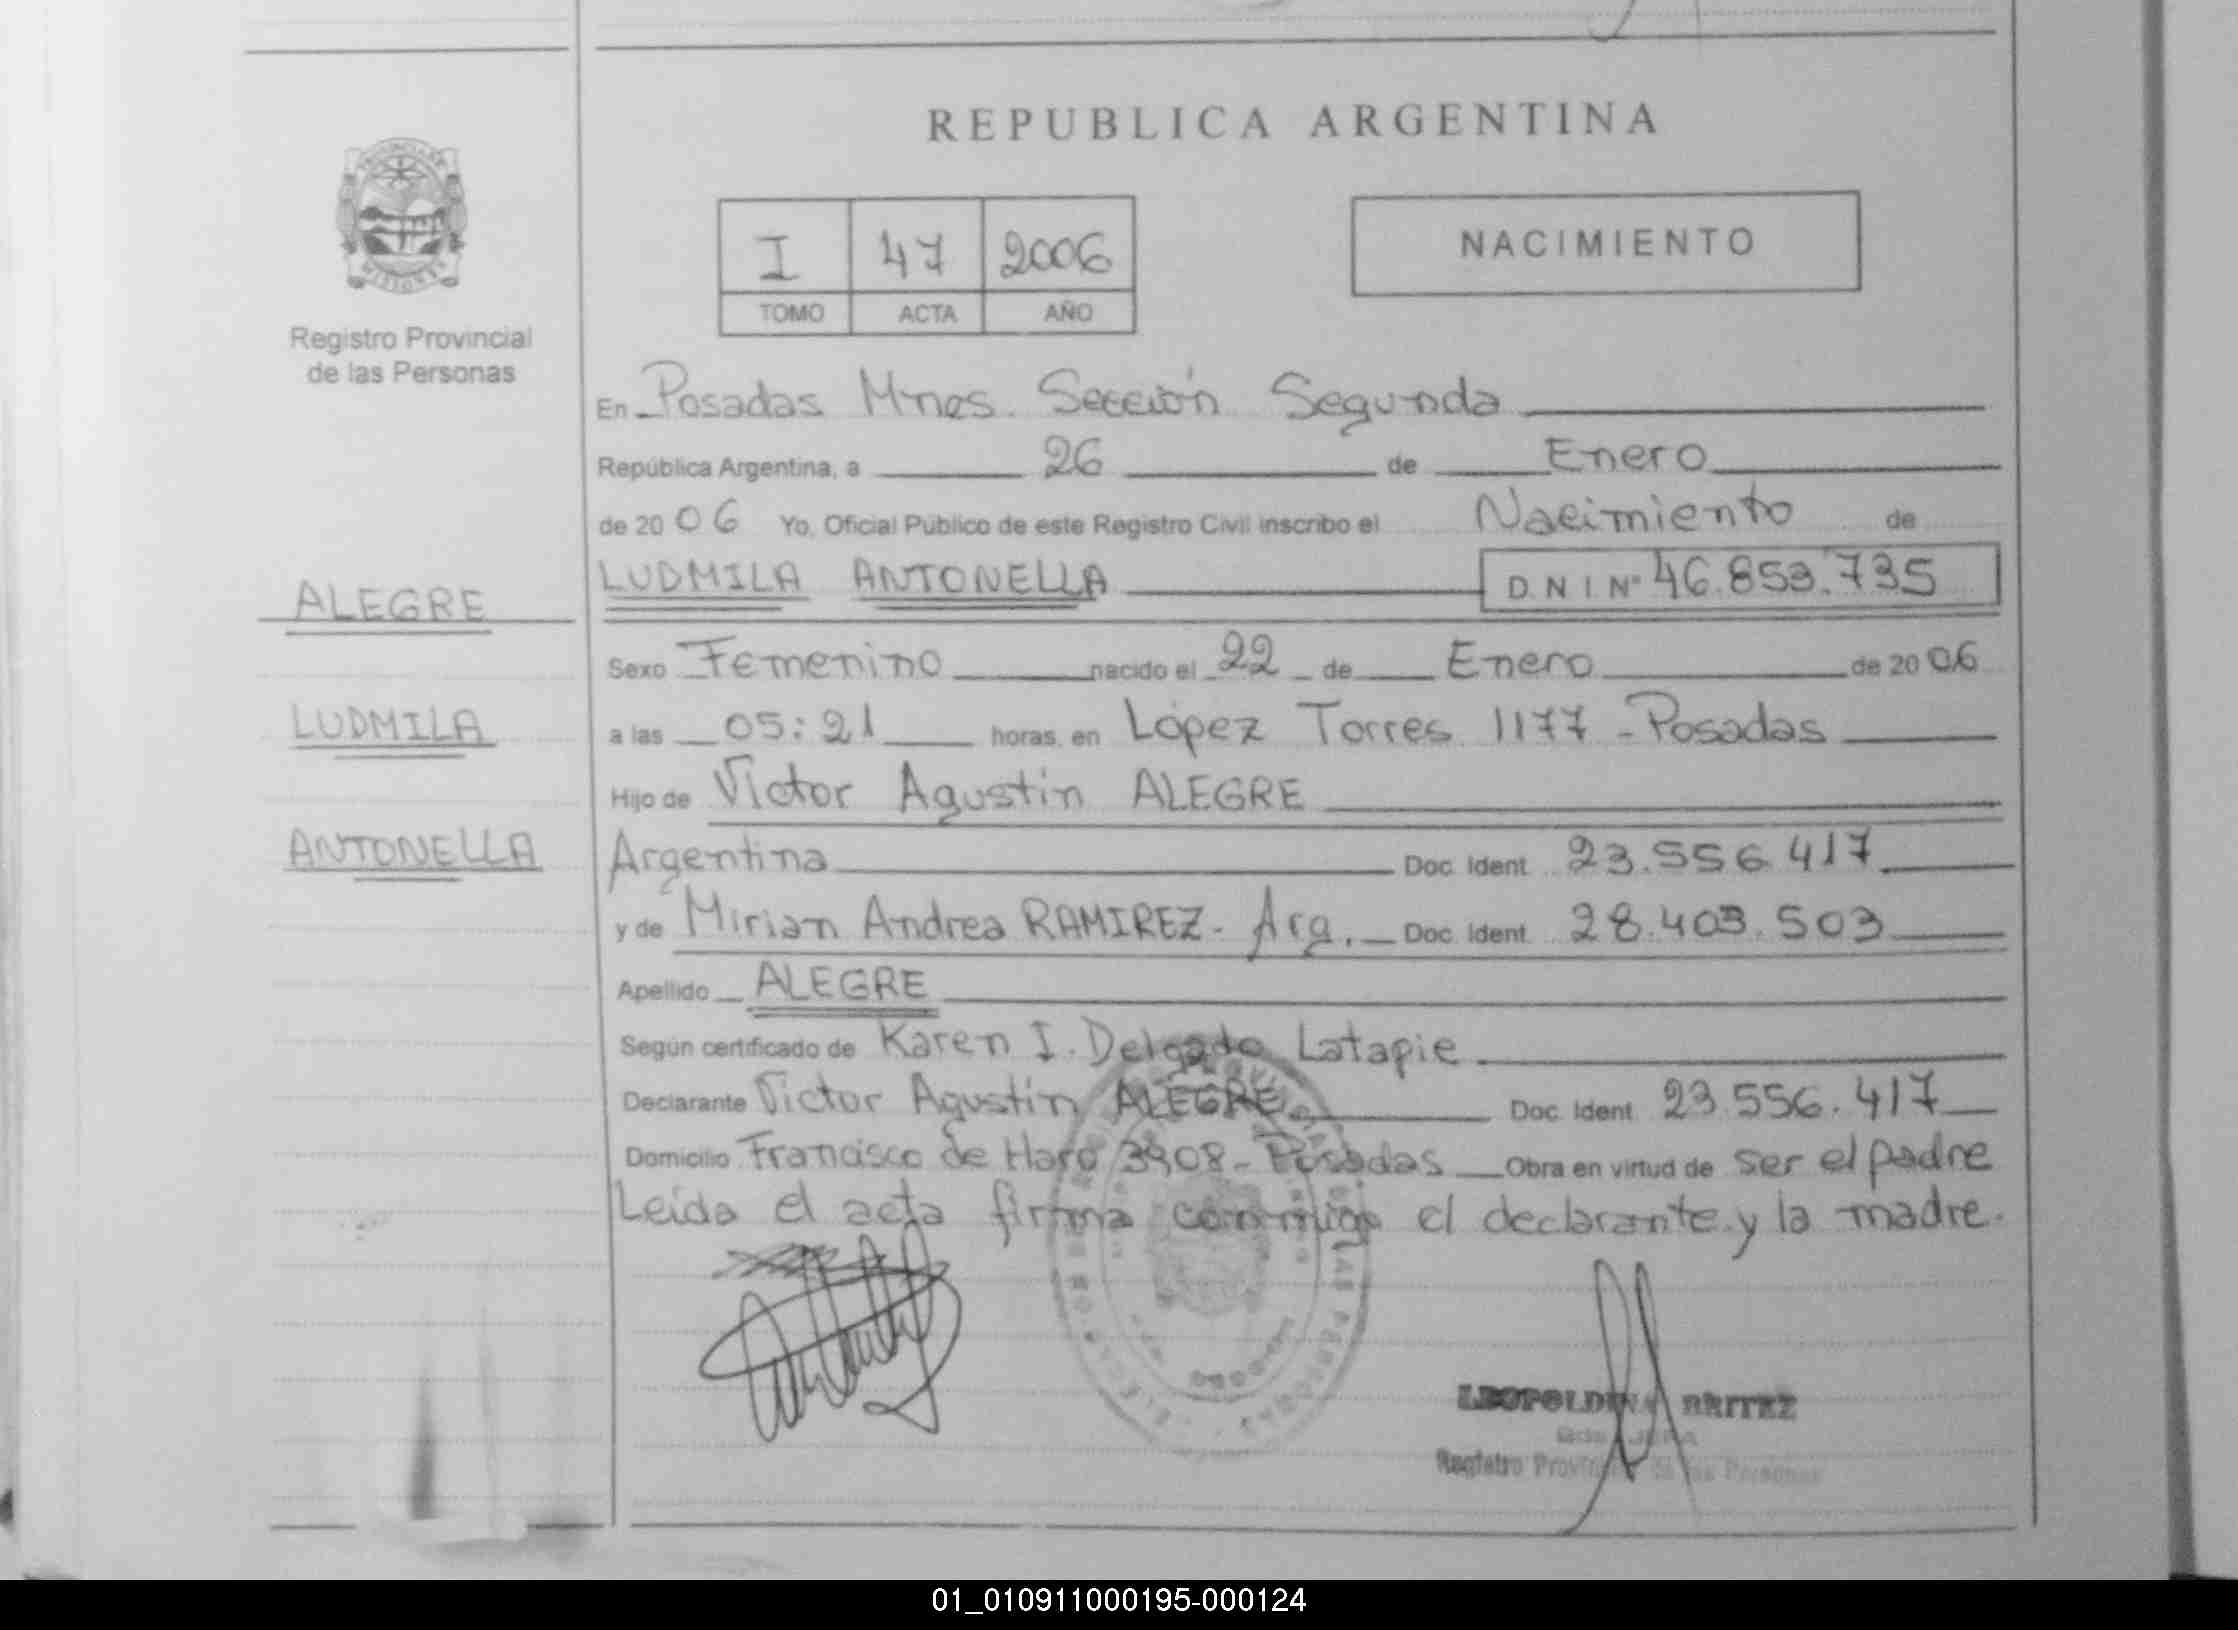 REPUBLICA ARGENTINA
I 47 2006
TOMO ACTA AÑO
NACIMIENTO
Registro Provincial
de las Personas
ALEGRE
LUDMILA
ANTONELLA
En Posadas Mnes. Sección Segunda
República Argentina, a 26 de Enero
de 2006 Yo, Oficial Público de este Registro Civil inscribo el Nacimiento de
LUDMILA ANTONELLA D N I Nº 46.853.735
Sexo Femenino nacido el 22 de Enero de 2006
a las 05:21 horas, en López Torres 1177 - Posadas
Hijo de Victor Agustín ALEGRE
Argentina Doc. Ident. 23.556.417
y de Mirian Andrea RAMIREZ - Arg. Doc. Ident. 28.403.503
Apellido ALEGRE
Según certificado de Karen I. Delgado Latapie
Declarante Victor Agustín ALEGRE Doc. Ident. 23.556.417
Domicilio Francisco de Haro 3908 - Posadas Obra en virtud de ser el padre
Leída el acta firma conmigo el declarante y la madre.
LEOPOLDINA BRITEZ
Registro Provincial de las Personas
01_010911000195-000124